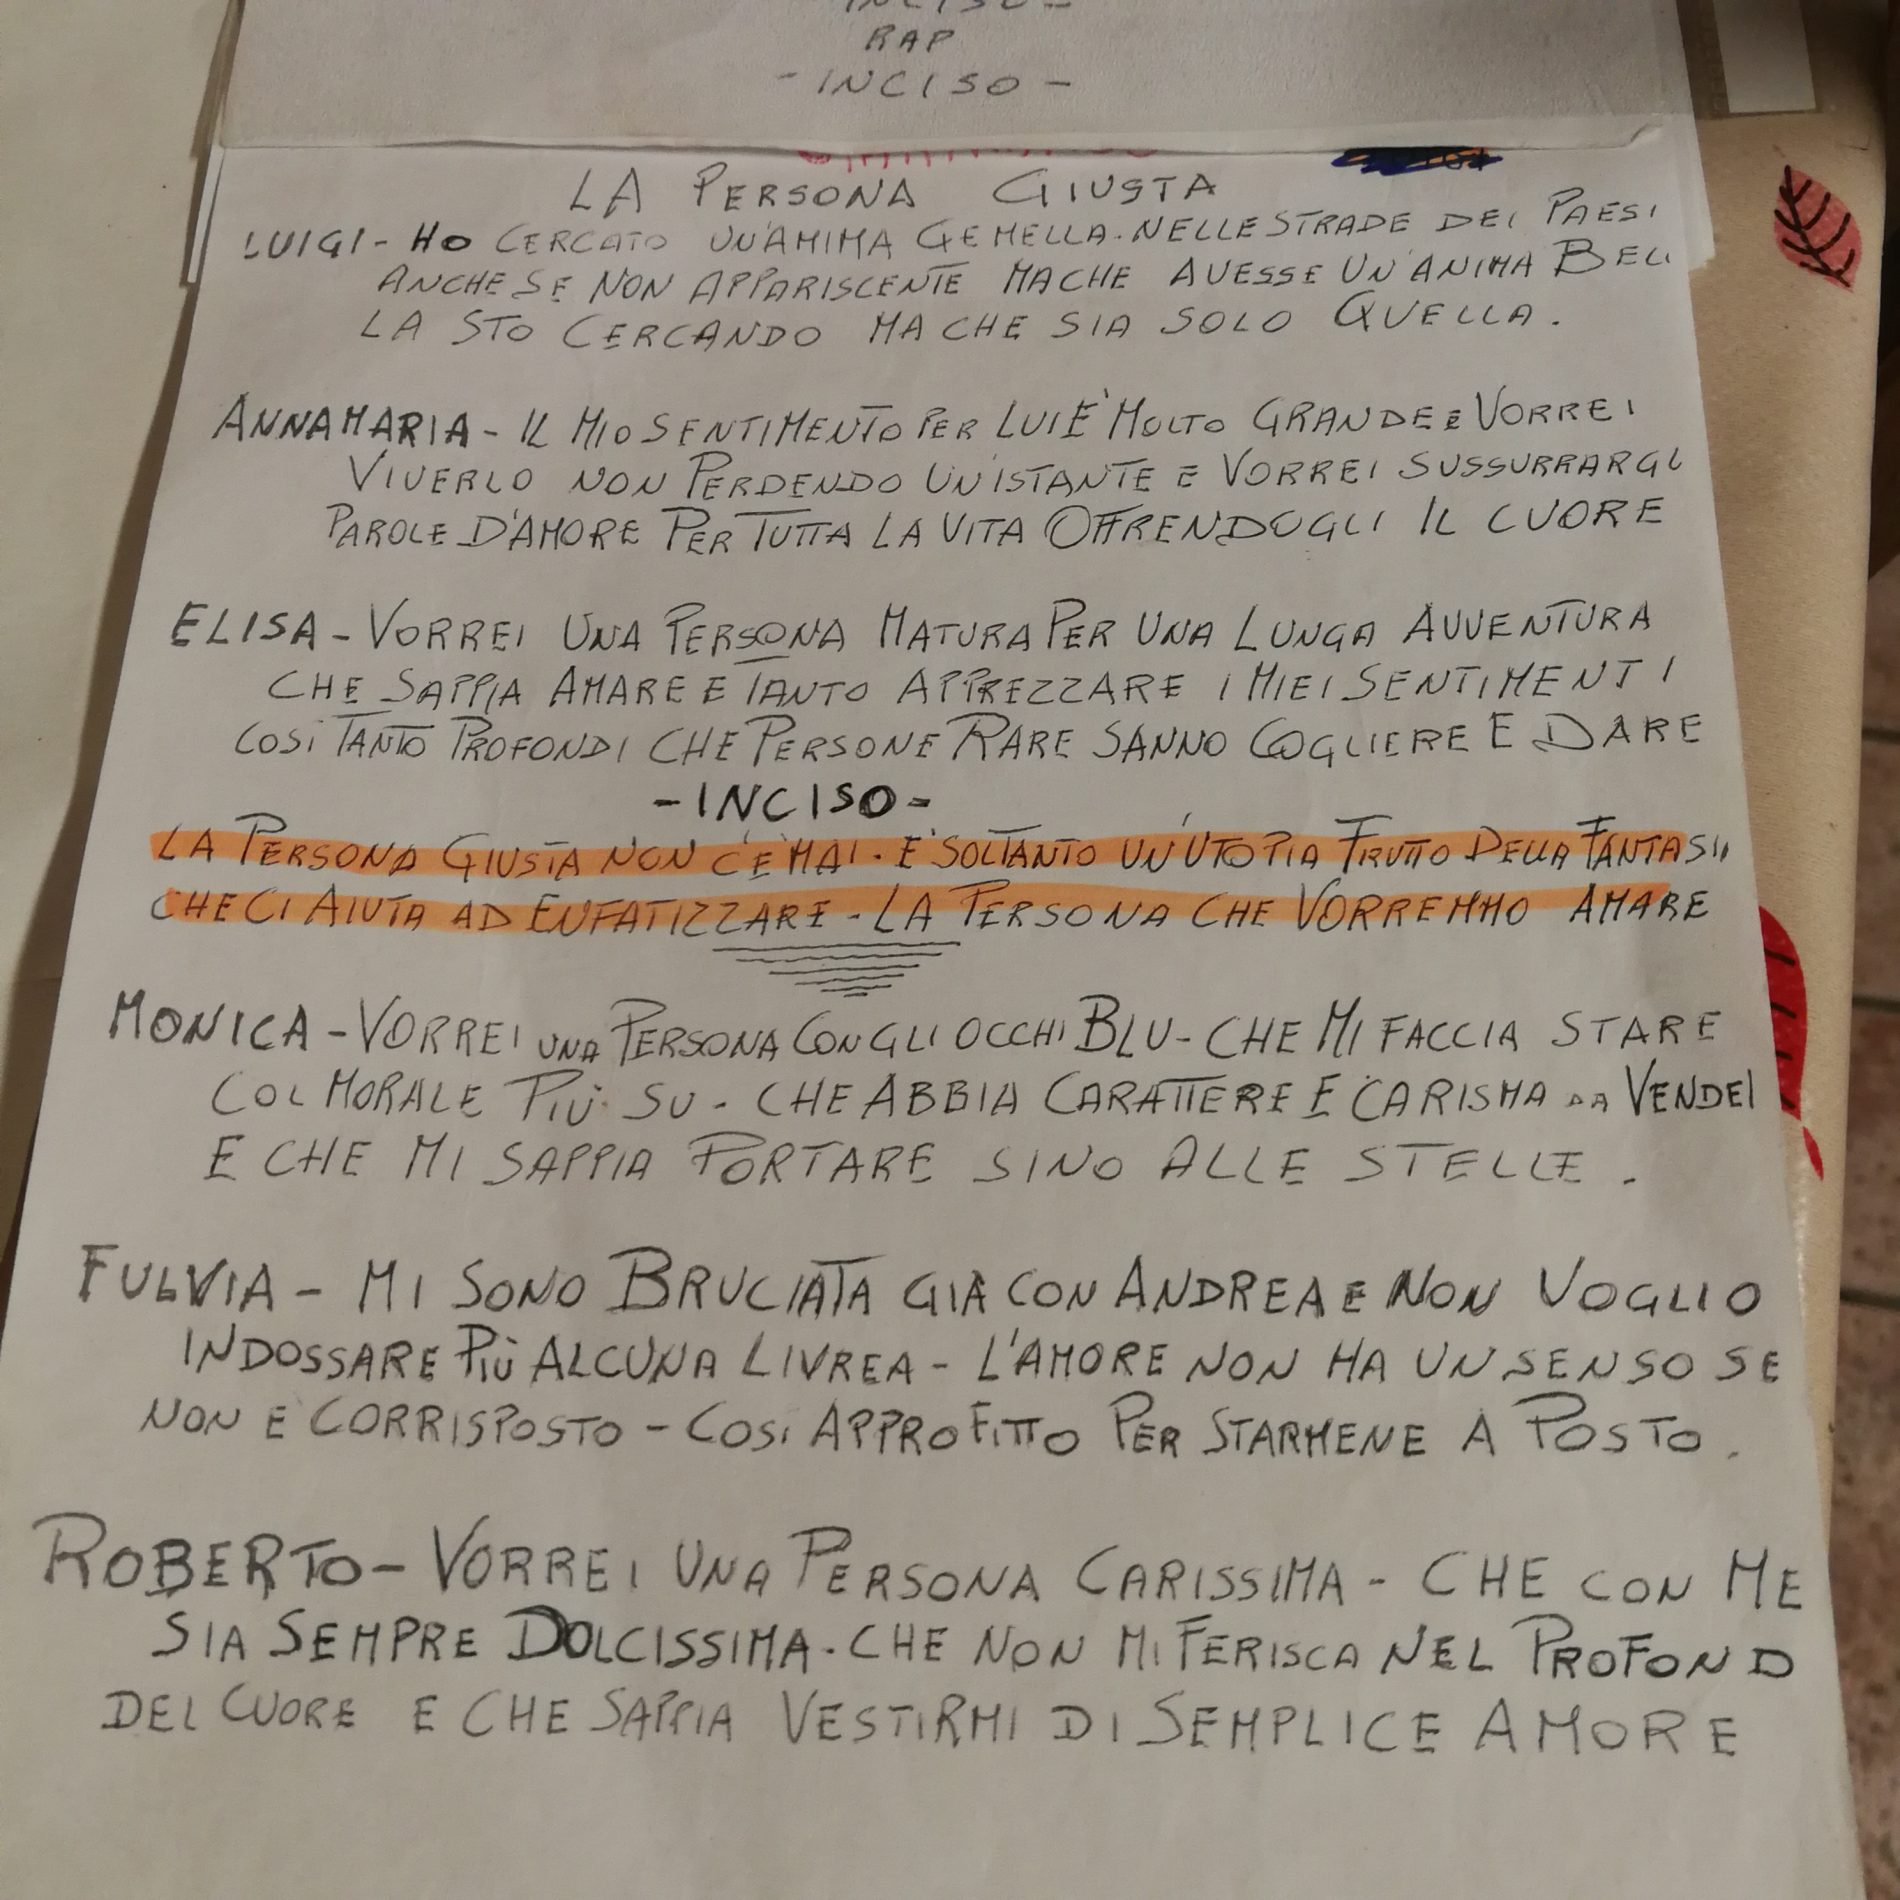 RAP
- INCISO -
LA PERSONA GIUSTA
LUIGI - HO CERCATO UN'AMIMA GEMELLA. NELLE STRADE DEI PAESI
ANCHE SE NON APPARISCENTE MA CHE AVESSE UN'ANIMA BEL
LA STO CERCANDO MA CHE SIA SOLO QUELLA.
ANNAMARIA - IL MIO SENTIMENTO PER LUI E' MOLTO GRANDE E VORREI
VIVERLO NON PERDENDO UN'ISTANTE E VORREI SUSSURRARGL
PAROLE D'AMORE PER TUTTA LA VITA OFFRENDOGLI IL CUORE
ELISA - VORREI UNA PERSONA MATURA PER UNA LUNGA AVVENTURA
CHE SAPPIA AMARE E TANTO APPREZZARE I MIEI SENTIMENTI
COSI TANTO PROFONDI CHE PERSONE RARE SANNO COGLIERE E DARE
- INCISO -
LA PERSONA GIUSTA NON C'E' MAI. E' SOLTANTO UN'UTOPIA FRUTTO DELLA FANTASI
CHE CI AIUTA AD ENFATIZZARE - LA PERSONA CHE VORREMMO AMARE
MONICA - VORREI UNA PERSONA CON GLI OCCHI BLU - CHE MI FACCIA STARE
COL MORALE PIÙ SU - CHE ABBIA CARATTERE E CARISMA DA VENDE
E CHE MI SAPPIA PORTARE SINO ALLE STELLE.
FULVIA - MI SONO BRUCIATA GIÀ CON ANDREA E NON VOGLIO
INDOSSARE PIÙ ALCUNA LIVREA - L'AMORE NON HA UN SENSO SE
NON E' CORRISPOSTO - COSI APPROFITTO PER STARMENE A POSTO.
ROBERTO - VORREI UNA PERSONA CARISSIMA - CHE CON ME
SIA SEMPRE DOLCISSIMA. CHE NON MI FERISCA NEL PROFOND
DEL CUORE E CHE SAPPIA VESTIRMI DI SEMPLICE AMORE